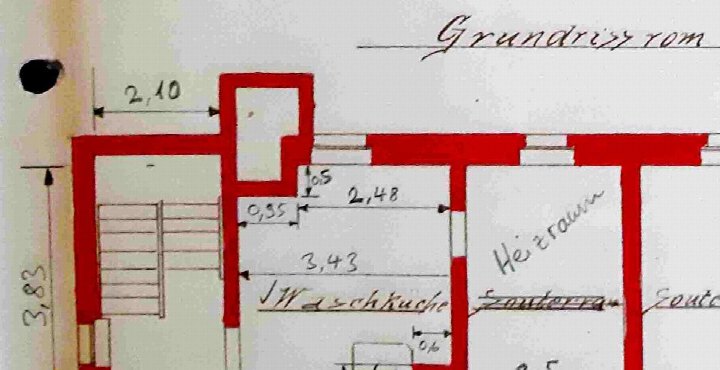 Grundriss vom
2,10
0,5
0,95 2,48
3,43
Heizraum
3,83
Waschküche
0,6